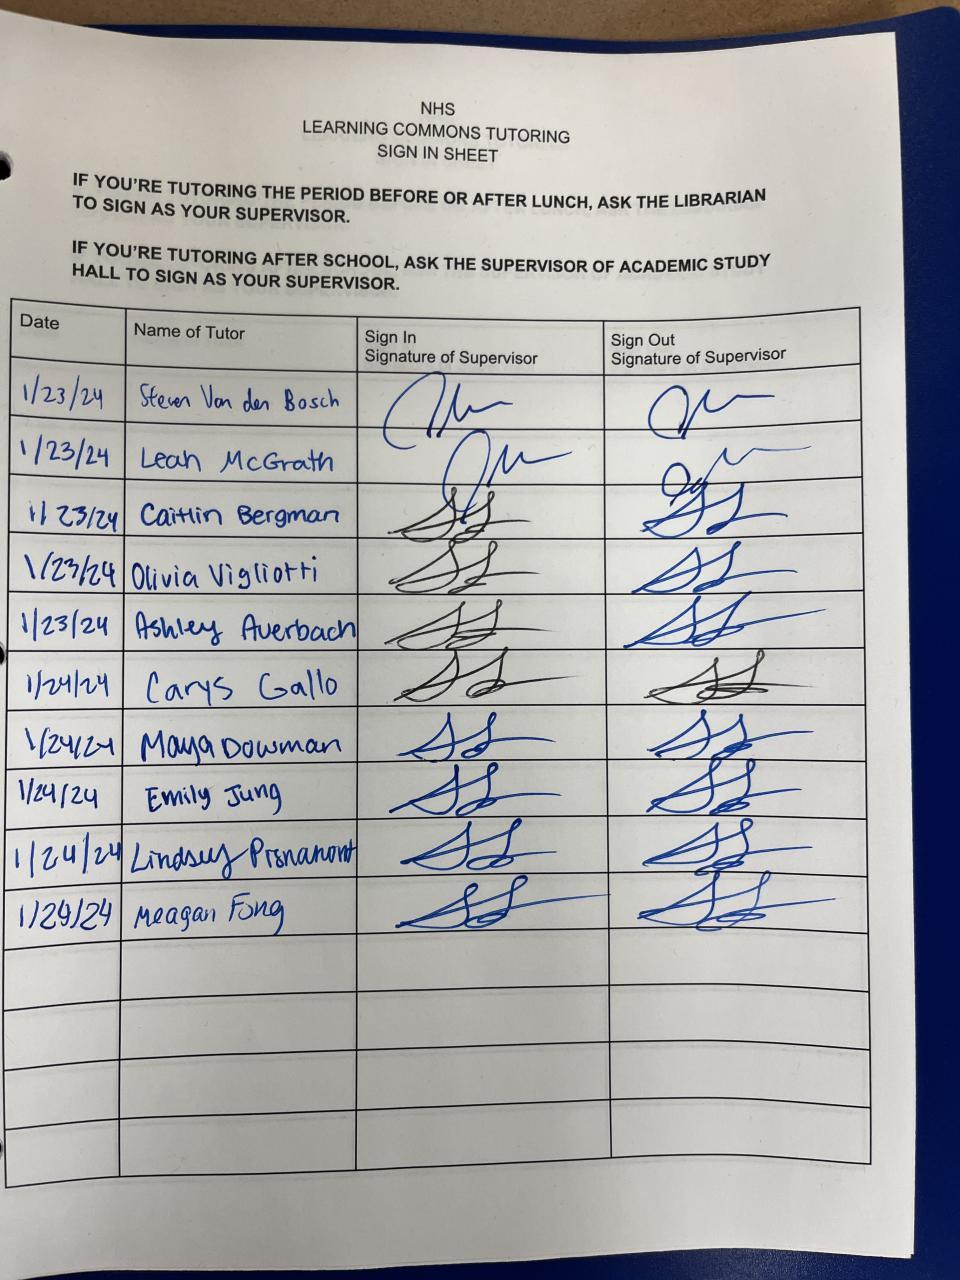 NHS
LEARNING COMMONS TUTORING
SIGN IN SHEET
IF YOU'RE TUTORING THE PERIOD BEFORE OR AFTER LUNCH, ASK THE LIBRARIAN
TO SIGN AS YOUR SUPERVISOR.
IF YOU'RE TUTORING AFTER SCHOOL, ASK THE SUPERVISOR OF ACADEMIC STUDY
HALL TO SIGN AS YOUR SUPERVISOR.
Date Name of Tutor Sign In Sign Out
Signature of Supervisor Signature of Supervisor
1/23/24 Steven Van den Bosch
1/23/24 Leah McGrath
1/23/24 Caitlin Bergman
1/23/24 Olivia Vigliotti
1/23/24 Ashley Auerbach
1/24/24 Carys Gallo
1/24/24 Maya Dowman
1/24/24 Emily Jung
1/24/24 Lindsey
1/29/24 Meagan Fong